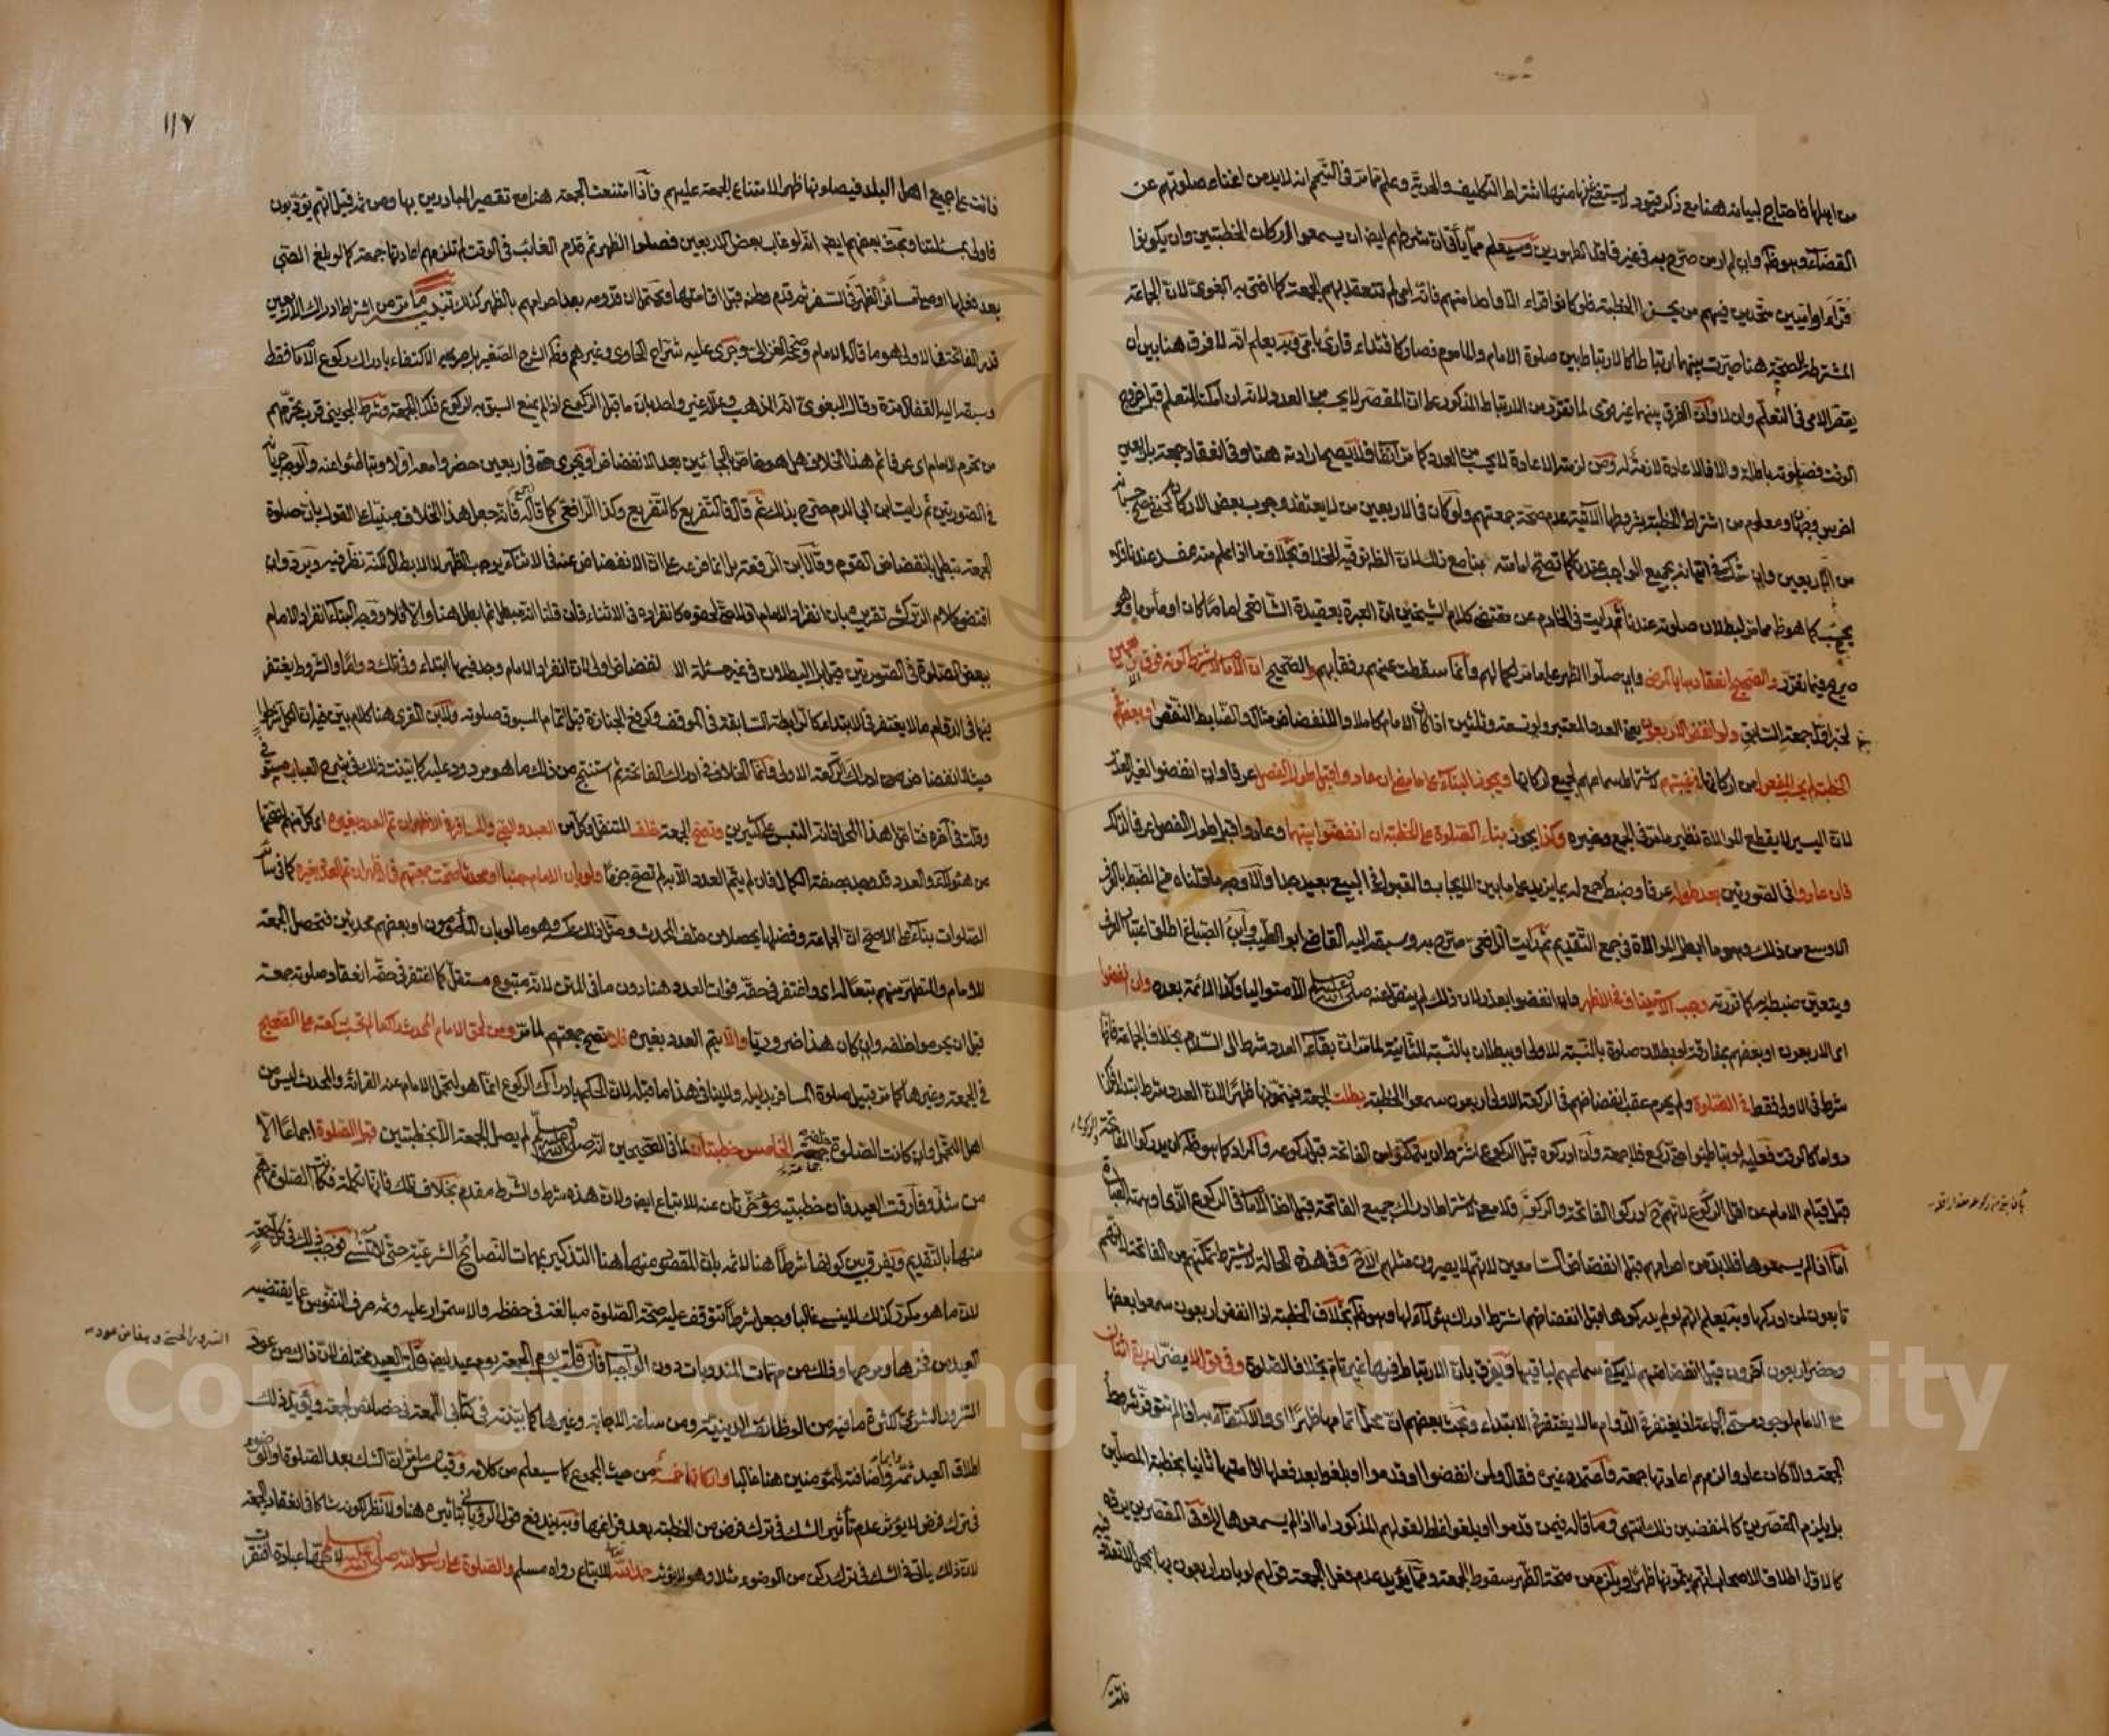 من اهلها فاحتاج لبيانه هنا مع ذكر قيود لا يستغنى عنها منها لاشتراط التكليف والحرية وعلم مما مر في التيمم انه لا بد من اغناء صلوتهم عن
القضاء وهو ظ وان لم ار من صرح به في غير فاقد الطهورين وسيعلم مما يأتي ان شرطهم ايض ان يسمعوا اركان الخطبتين وان يكونوا
قراء او اميين متحدين فيهم من يحسن الخطبة فلو كانوا قراء الا واحدا منهم فانه امي لم تنعقد بهم الجمعة كما افتى به البغوي لان الجماعة
المشترطة للصحة هنا صيرت بينهما ارتباطا كالارتباط بين صلوة الامام والماموم فصار كاقتداء قارئ بامي وبه يعلم انه لا فرق هنا بين ان
يقصر الامي في التعلم وان لا وان الفرق بينهما غير قوي لما تقرر من الارتباط المذكور على ان المقصر لا يحسب من العدد لانه ان امكنه التعلم قبل خروج
الوقت فصلوته باطلة والا فالاعادة لازمة له ومن لزمته الاعادة لا يحسب من العدد كما مر آنفا فلا يصح ارادته هنا وفي انعقاد جمعة باربعين
اخرس وجهان ومعلوم من اشتراط الخطبة بشروطها الآتية عدم صحة جمعتهم ولو كان في الاربعين من لا يعتقد وجوب بعض الاركان كحنفي صح حسبانه
من الاربعين وان شك في اتيانه بجميع الواجب عندنا كما تصح امامته بنا مع ذلك لان الظ توقيه للخلاف بخلاف ما اذا علم منه مفسد عندنا فلا
يحسب كما هو ظ مما مر لبطلان صلوته عندنا ثم رايت في الخادم عن مقتضى كلام الشيخين ان العبرة بعقيدة الشافعي اماما كان او مأموما وهو
صريح فيما تقرر والصحيح انعقادها بالمرضى وان صلوا الظهر على ما مر لكمالهم وانما سقطت عنهم رفقا بهم والصحيح ان الامام لا يشترط كونه فوق اربعين
لخبر اول جمعة السابق ولو انفض الاربعون يعني العدد المعتبر ولو تسعة وثلثين اذا كان الامام كاملا والانفضاض مثال والضابط النقص او بعضهم في
الخطبة لم يحسب المفعول من اركانها في غيبتهم لاشتراط سماعهم لجميع اركانها ويجوز البناء على ما مضى ان عادوا قبل طول الفصل عرفا وان انفضوا لغير عذر
لان اليسير لا يقطع الموالاة نظير ما مر في الجمع وغيره وكذا يجوز بناء الصلوة على الخطبة ان انفضوا بينهما وعادوا قبل طول الفصل عرفا لذلك
فان عادوا في الصورتين بعد طوله عرفا وضبطه جمع له بما يزيد على ما بين الايجاب والقبول في البيع بعيد جدا والاوجه ما قلناه من الضبط بالعرف
الاوسع من ذلك وهو ما ابطل الموالاة في جمع التقديم ثم رايت الرافعي صرح به وسبقه اليه القاضي ابو الطيب وابن الصباغ اطلق اعتبار العرف
ويتعين ضبطه بما قررته وجب الاستيناف في الاظهر وان انفضوا بعذر لان ذلك لم ينقل عنه صلى الله عليه وسلم الا متواليا وكذا الائمة بعده وان انفضوا
اي الاربعون او بعضهم بمفارقة او بطلان صلوة بالنسبة للاولى وببطلان بالنسبة للثانية لما مر ان بقاء العدد شرط الى السلام بخلاف الجماعة فانها
شرط في الاولى فقط في الصلوة ولم يحرم عقب انفضاضهم في الركعة الاولى اربعون سمعوا الخطبة بطلت الجمعة فيتمونها ظهرا لان العدد شرط ابتداء فكذا
دواما كالوقت فعليه لو تباطئوا حتى ركع فلا جمعة وان ادركوه قبل الركوع اشترط ان يتمكنوا من الفاتحة قبل ركوعه والمراد كما هو ظ ان يدركوا الفاتحة والركوع
قبل قيام الامام عن اقل الركوع لانهم ح ادركوا الفاتحة والركعة فلا معنى لاشتراط ادراك جميع الفاتحة قبل اخذ الامام في الركوع الذي اوهمته العبارة
اما اذا لم يسمعوها فلا بد من احرامهم قبل انفضاض السامعين لانهم لا يصيرون مثلهم الا ح وفي هذه الحالة لا يشترط تمكنهم من الفاتحة لانهم
تابعون لمن ادركها وبه يعلم انهم لو لم يدركوها قبل انفضاضهم اشترط ادراك هؤلاء لها وهو ظ بخلاف الخطبة اذا انفض اربعون سمعوا بعضها
وحضر اربعون آخرون قبل انفضاضهم لا يكفي سماعهم لباقيها ويفرق بان الارتباط فيها غير تام بخلاف الصلوة وفي قول لا يضر ان بقي اثنان
مع الامام لوجود مسمى الجماعة اذ يغتفر في الدوام ما لا يغتفر في الابتداء وبحث بعضهم ان محل اتمامها ظهرا اي والاكتفاء به اذا لم تتوفر شروط
الجمعة والا كان عادوا لزمهم اعادتها جمعة واعتمده غيره فقال ولمن انفضوا او قدموا او بلغوا بعد فعلها اقامتها ثانيا بخطبة المصلين
بل يلزم المقصرين كالمنفضين ذلك انتهى وما قاله فيمن قدموا او بلغوا غلط لقولهم المذكور اما اذا لم يسمعوها في غير المقصرين يرده
كالاول اطلاق الاصحاب انهم يتمونها ظهرا ويلزم من صحة الظهر سقوط الجمعة ومما يؤيد عدم فعل الجمعة قولهم لو بادر اربعون بها بمحل لا تتعدد فيه
فاتت
فاتت على جميع اهل البلد فيصلونها ظهرا لامتناع الجمعة عليهم فاذا امتنعت الجمعة هنا مع تقصير المبادرين بها ومن ثم قيل انهم يؤدبون
فاولى بمسئلتنا وبحث بعضهم ايض انه لو غاب بعض الاربعين فصلوا الظهر ثم قدم الغائب في الوقت لم تلزمهم اعادتها جمعة كما لو بلغ الصبي
بعد فعلها او صلى مسافر الظهر في السفر ثم قدم وطنه قبل اقامتها ويحتمل ان قدومه بعد احرامهم بالظهر كذلك تنبيه ما مر من اشتراط ادراك الاربعين
قدر الفاتحة في الاولى هو ما قاله الامام وصححه الغزالي وجرى عليه شراح الحاوي وغيرهم وظ الشرح الصغير بل صريحه الاكتفاء بادراك ركوع الامام فقط
وسبقه اليه القفال مرة وقال البغوي انه المذهب وعلله غير واحد بان ما قبل الركوع اذا لم يمنع السبق به الركوع فكذا الجمعة وشرط الجويني قرب تحرمهم
من تحرم الامام اي عرفا ثم هذا الخلاف هل هو خاص بالجائين بعد الانفضاض او يجري حتى في اربعين حضروا معه اولا وتباطئوا عنه والاوجه جريانه
في الصورتين ثم رايت ابن ابي الدم صرح بذلك ثم قال فالتفريع كالتفريع وكذا الرافعي كما قاله فانه جعل هذا الخلاف مبنيا على القول بان صلوة
الجمعة تبطل بانفضاض القوم وقال ابن الرفعة بل انما فرعه على ان الانفضاض عنه في الاثناء يوجب الظهر لا الابطال لكنه نظر فيه ويرد وان
اقتضى كلام الزركشي تقريره بان انفراد الامام اولا مع لحوقه كانفراده في الاثناء فان قلنا انه مبطل ثم ابطل هنا والا فلا ووجه البناء انفراد الامام
ببعض الصلوة في الصورتين قيل بل البطلان في غير مسئلة الانفضاض اولى لان انفراد الامام وجد فيها ابتداء وفي تلك دواما والشروط يغتفر
فيها في الدوام ما لا يغتفر في الابتداء كالرابطة السابقة في الموقف وكرفع الجنازة قبل اتمام المسبوق صلوته ولابن المقري هنا كلام بين فيه ان الكل شرطوا
حيث الانفضاض من ادرك الركعة الاولى وانما الخلاف في ادراك الفاتحة ثم استنتج من ذلك ما هو مردود عليه كما بينت ذلك في شرح العباب مبسوطا في
وقلت في آخره فتامل هذا المحل فانه التبس على كثيرين وتصح الجمعة خلف المتنفل وكل من العبد والصبي والمسافر في الاظهر ان تم العدد بغيره اي كل منهم لصحتها
من هؤلاء والعدد قد وجد بصفة الكمال فان لم يتم العدد الا بهم لم تصح جزما ولو بان الامام جنبا او محدثا صحت جمعتهم في الاظهر ان تم العدد بغيره كما في سائر
الصلوات بناء على الاصح ان الجماعة وفضلها يحصلان خلف المحدث ومثل ذلك عكسه وهو ما لو بان المأمومون او بعضهم محدثين فتحصل الجمعة
للامام والمتطهر منهم تبعا له اي واغتفر في حقه فوات العدد هنا دون ما في المتن لانه متبوع مستقل كما اغتفر في حقه انعقاد صلوته جمعة
قبل ان يحرموا خلفه وان كان هذا ضروريا والا يتم العدد بغيره فلا تصح جمعتهم لما مر ومن لحق الامام المحدث راكعا لم تحسب ركعته على الصحيح
في الجمعة وغيرها كما مر قبيل صلوة المسافر بدليله ولا ينافي هذا ما قبله لان الحكم بادراك الركوع انما هو لتحمل الامام عنه القراءة والمحدث ليس من
اهل التحمل وان كانت الصلوة خلفه جماعة الخامس خطبتان لما في الصحيحين انه صلى الله عليه وسلم لم يصل الجمعة الا بخطبتين قبل الصلوة اجماعا الا
من شذ وفارقت العيد فان خطبتيه مؤخرتان عنه للاتباع ايض ولان هذه شرط والشرط مقدم بخلاف تلك فانها تكملة فكانت الصلوة اهم
منها بالتقديم ويفرق بين كونها شرطا هنا لا ثمه بان المقصود منها هنا التذكير بمهمات المصالح الشرعية حتى لا تنسى فوجب ذلك في كل جمعة
لان ما هو مكرر كذلك لا ينسى غالبا وجعل شرطا تتوقف عليه صحة الصلوة مبالغة في حفظه والاستمرار عليه وثمه صرف النفوس عما يقتضيه
العيد من فخرها ومرحها وذلك من مهمات المندوبات دون الواجب فان قلت يوم الجمعة يوم عيد ايض قلت العيد مختلف لان ذاك من عود
السرور الشرعي لكثرة ما فيه من الوظائف الدينية ومن ساعة الاجابة وغيرها كما بينته في كتابي اللمعة في خصائص الجمعة ويؤيد ذلك
اطلاق العيد ثمه واضافته للمؤمنين هنا غالبا واركانهما خمسة من حيث المجموع كما سيعلم من كلامه وقياس ما مر ان الشك بعد الصلوة او الوضوء
في ترك فرض لا يؤثر عدم تأثير الشك في ترك فرض من الخطبة بعد فراغها وبه يندفع قول الروياني بتاثيره هنا ولا نظر لكونه شاكا في انعقاد الجمعة
لان ذلك ياتي في الشك في ترك ركن من الوضوء مثلا وهو لا يؤثر حمد الله تعالى للاتباع رواه مسلم والصلوة على رسول الله صلى الله عليه وسلم لانها عبادة افتقرت
١١٧
Copyright © King Saud University